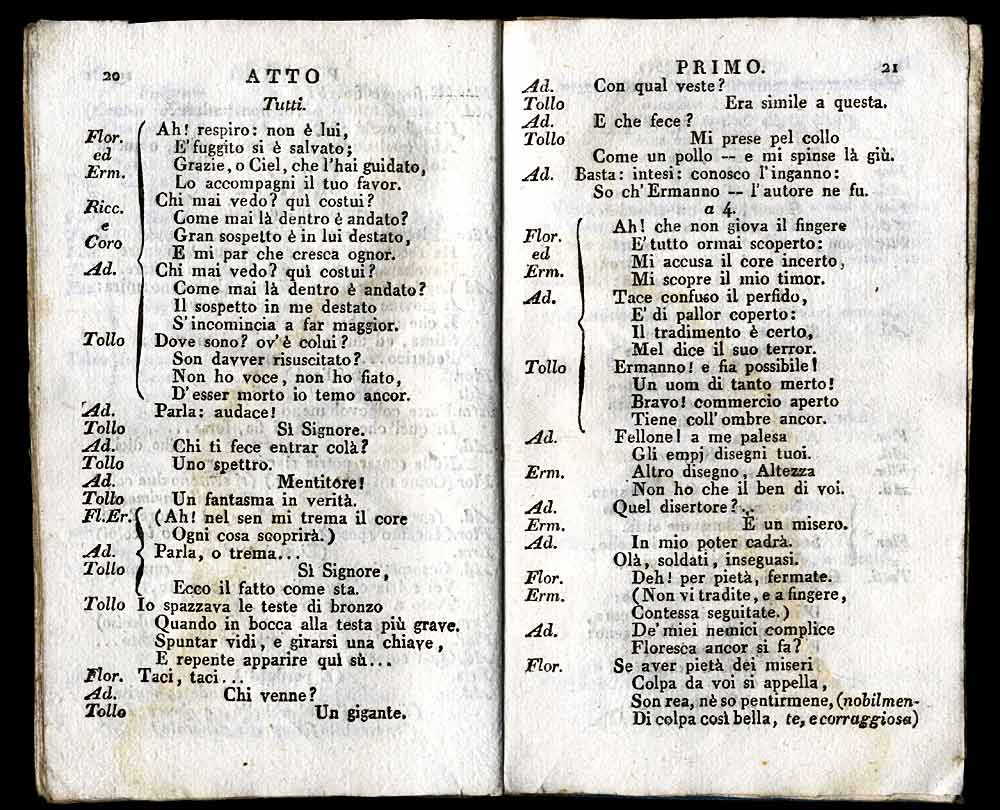 20 ATTO
Tutti.
Flor. Ah! respiro: non è lui,
ed E' fuggito si è salvato;
Erm. Grazie, o Ciel, che l'hai guidato,
Lo accompagni il tuo favor.
Ricc. Chi mai vedo? quì costui?
e Come mai là dentro è andato?
Coro Gran sospetto è in lui destato,
E mi par che cresca ognor.
Ad. Chi mai vedo? quì costui?
Come mai là dentro è andato?
Il sospetto in me destato
S'incomincia a far maggior.
Tollo Dove sono? ov'è colui?
Son davver risuscitato?
Non ho voce, non ho fiato,
D'esser morto io temo ancor.
Ad. Parla: audace!
Tollo Sì Signore.
Ad. Chi ti fece entrar colà?
Tollo Uno spettro.
Ad. Mentitore!
Tollo Un fantasma in verità.
Fl.Er. (Ah! nel sen mi trema il core
Ogni cosa scoprirà.)
Ad. Parla, o trema...
Tollo Sì Signore,
Ecco il fatto come sta.
Tollo Io spazzava le teste di bronzo
Quando in bocca alla testa più grave.
Spuntar vidi, e girarsi una chiave,
E repente apparire quì sù...
Flor. Taci, taci...
Ad. Chi venne?
Tollo Un gigante.
PRIMO. 21
Ad. Con qual veste?
Tollo Era simile a questa.
Ad. E che fece?
Tollo Mi prese pel collo
Come un pollo -- e mi spinse là giù.
Ad. Basta: intesi: conosco l'inganno:
So ch'Ermanno -- l'autore ne fu.
a 4.
Flor. Ah! che non giova il fingere
ed E' tutto ormai scoperto:
Erm. Mi accusa il core incerto,
Mi scopre il mio timor.
Ad. Tace confuso il perfido,
E' di pallor coperto:
Il tradimento è certo,
Mel dice il suo terror.
Tollo Ermanno! e fia possibile!
Un uom di tanto merto!
Bravo! commercio aperto
Tiene coll'ombre ancor.
Ad. Fellone! a me palesa
Gli empj disegni tuoi.
Erm. Altro disegno, Altezza
Non ho che il ben di voi.
Ad. Quel disertore?..
Erm. È un misero.
Ad. In mio poter cadrà.
Olà, soldati, inseguasi.
Flor. Deh! per pietà, fermate.
Erm. (Non vi tradite, e a fingere,
Contessa seguitate.)
Ad. De' miei nemici complice
Floresca ancor si fa?
Flor. Se aver pietà dei miseri
Colpa da voi si appella,
Son rea, nè so pentirmene, (nobilmen-
Di colpa così bella, te, e corraggiosa)